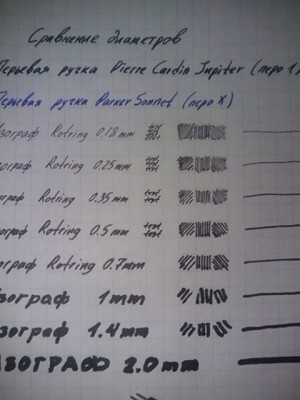 Сравнение диаметров
Перьевая ручка Pierre Cardin Jupiter (перо 1
Перьевая ручка Parker Sonnet (перо X)
зограф Rotring 0.18 mm test test
зограф Rotring 0.25 mm test test
ограф Rotring 0.35 mm test test
ограф Rotring 0.5 mm test test
ограф Rotring 0.7mm
зограф 1mm
зограф 1.4mm
ИЗОГРАФ 2.0mm